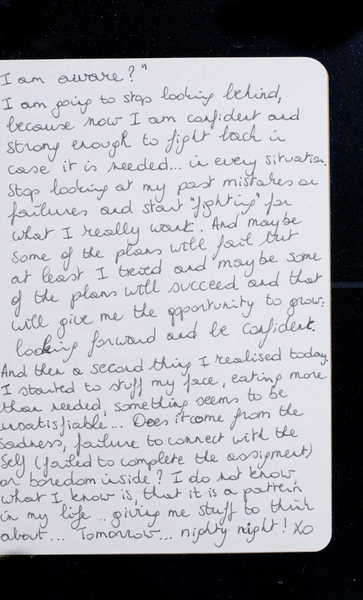 I am aware? "
I am going to stop looking behind,
because now I am confident and
strong enough to fight back in
case it is needed... in every situation.
Stop looking at my past mistakes or
failures and start "fighting" for
what I really want. And maybe
some of the plans will fail but
at least I tried and maybe some
of the plans will succeed and that
will give me the opportunity to grow:
looking forward and be confident.
And then a second thing I realised today.
I started to stuff my face, eating more
than needed, something seems to be
unsatisfiable... Does it come from the
sadness, failure to connect with the
self (failed to complete the assigment)
or boredom inside? I do not know,
what I know is, that it is a pattern
in my life .. giving me stuff to think
about... Tomorrow... nighty night! XO